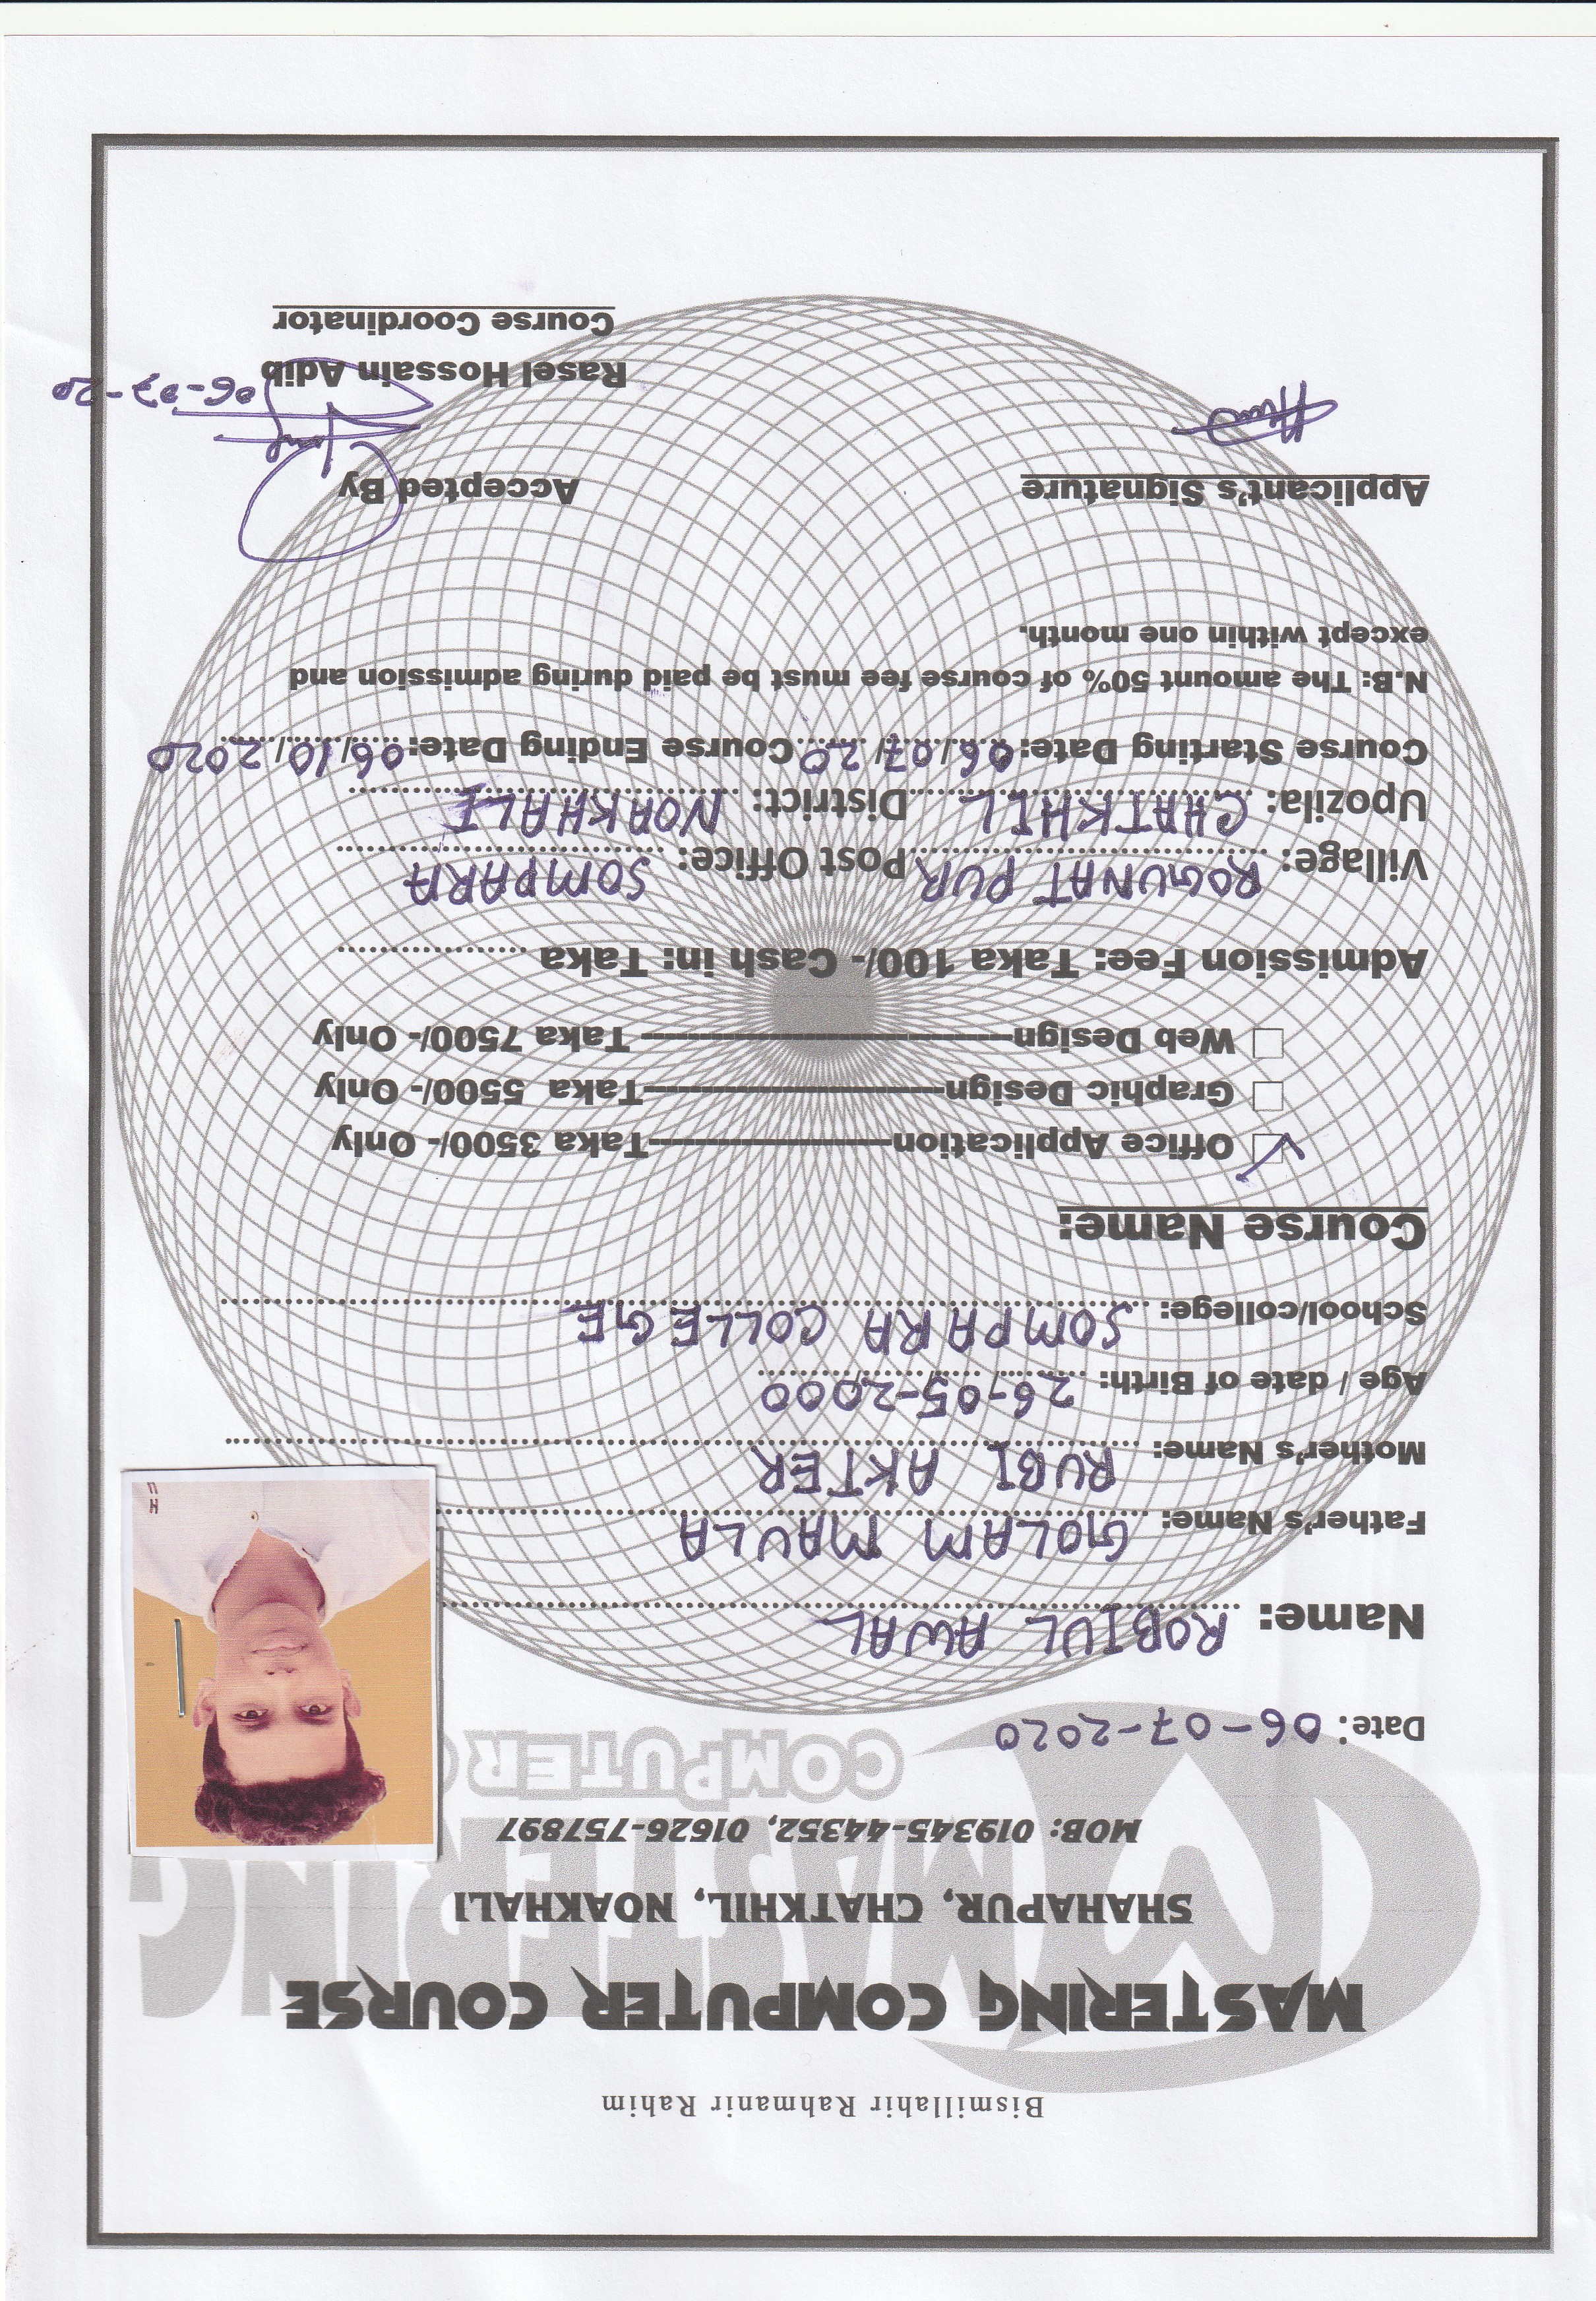 Bismillahir Rahmanir Rahim
MASTERING COMPUTER COURSE
SHAHAPUR, CHATKHIL, NOAKHALI
MOB: 019345-44352, 01626-757897
MASTERING
COMPUTER
Date: 06-07-2020
Name: ROBIUL AWAL
Father's Name: GOLAM MAULA
Mother's Name: RUBI AKTER
Age / date of Birth: 26-05-2000
School/college: SOMPARA COLLEGE
Course Name:
Office Application Taka 3500/- Only
Graphic Design Taka 5500/- Only
Web Design Taka 7500/- Only
Admission Fee: Taka 100/- Cash in: Taka ..................
Village: ROGUNAT PUR Post Office: SOMPARA
Upozila: CHATKHIL District: NOAKHALI
Course Starting Date: 06/07/20 Course Ending Date: 06/10/2020
N.B: The amount 50% of course fee must be paid during admission and
except within one month.
Applicant's Signature Accepted By
06-07-20
Rasel Hossain Adib
Course Coordinator